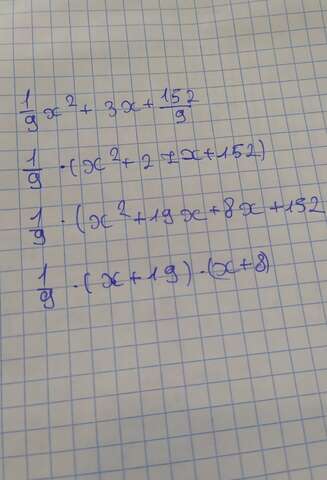 1/9 x² + 3x + 152/9
1/9 · (x² + 27x + 152)
1/9 · (x² + 19x + 8x + 152
1/9 · (x + 19) · (x + 8)